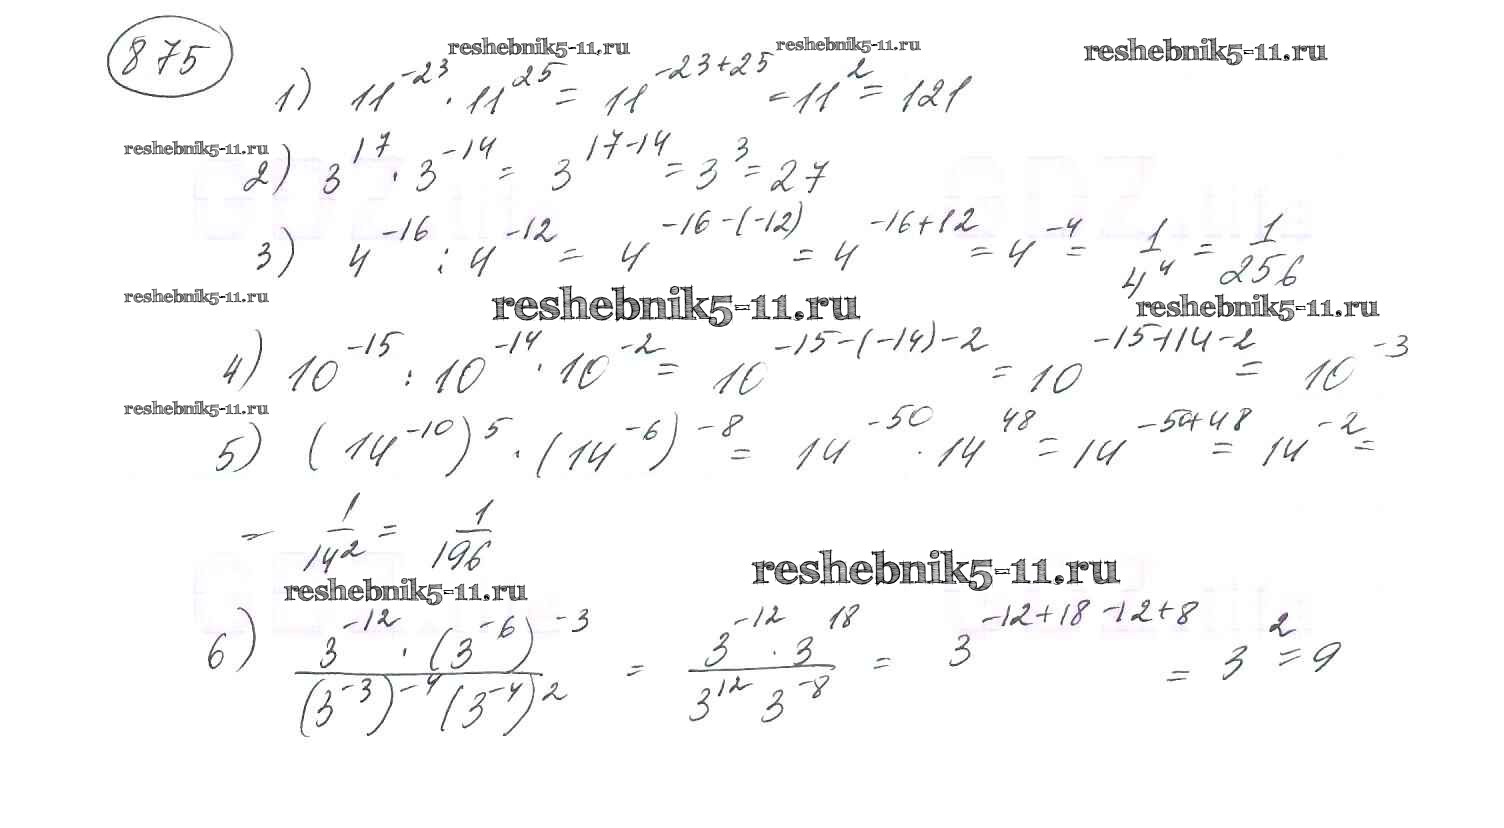 875
reshebnik5-11.ru reshebnik5-11.ru reshebnik5-11.ru
1) 11^{-23} · 11^{25} = 11^{-23+25} = 11^{2} = 121
reshebnik5-11.ru
2) 3^{17} · 3^{-14} = 3^{17-14} = 3^{3} = 27
3) 4^{-16} : 4^{-12} = 4^{-16-(-12)} = 4^{-16+12} = 4^{-4} = 1/4^{4} = 1/256
reshebnik5-11.ru reshebnik5-11.ru reshebnik5-11.ru
4) 10^{-15} : 10^{-14} · 10^{-2} = 10^{-15-(-14)-2} = 10^{-15+14-2} = 10^{-3}
reshebnik5-11.ru
5) (14^{-10})^{5} · (14^{-6})^{-8} = 14^{-50} · 14^{48} = 14^{-50+48} = 14^{-2} =
= 1/14^{2} = 1/196
reshebnik5-11.ru reshebnik5-11.ru
6) (3^{-12} · (3^{-6})^{-3})/((3^{-3})^{-4} (3^{-4})^{2}) = (3^{-12} · 3^{18})/(3^{12} 3^{-8}) = 3^{-12+18-12+8} = 3^{2} = 9